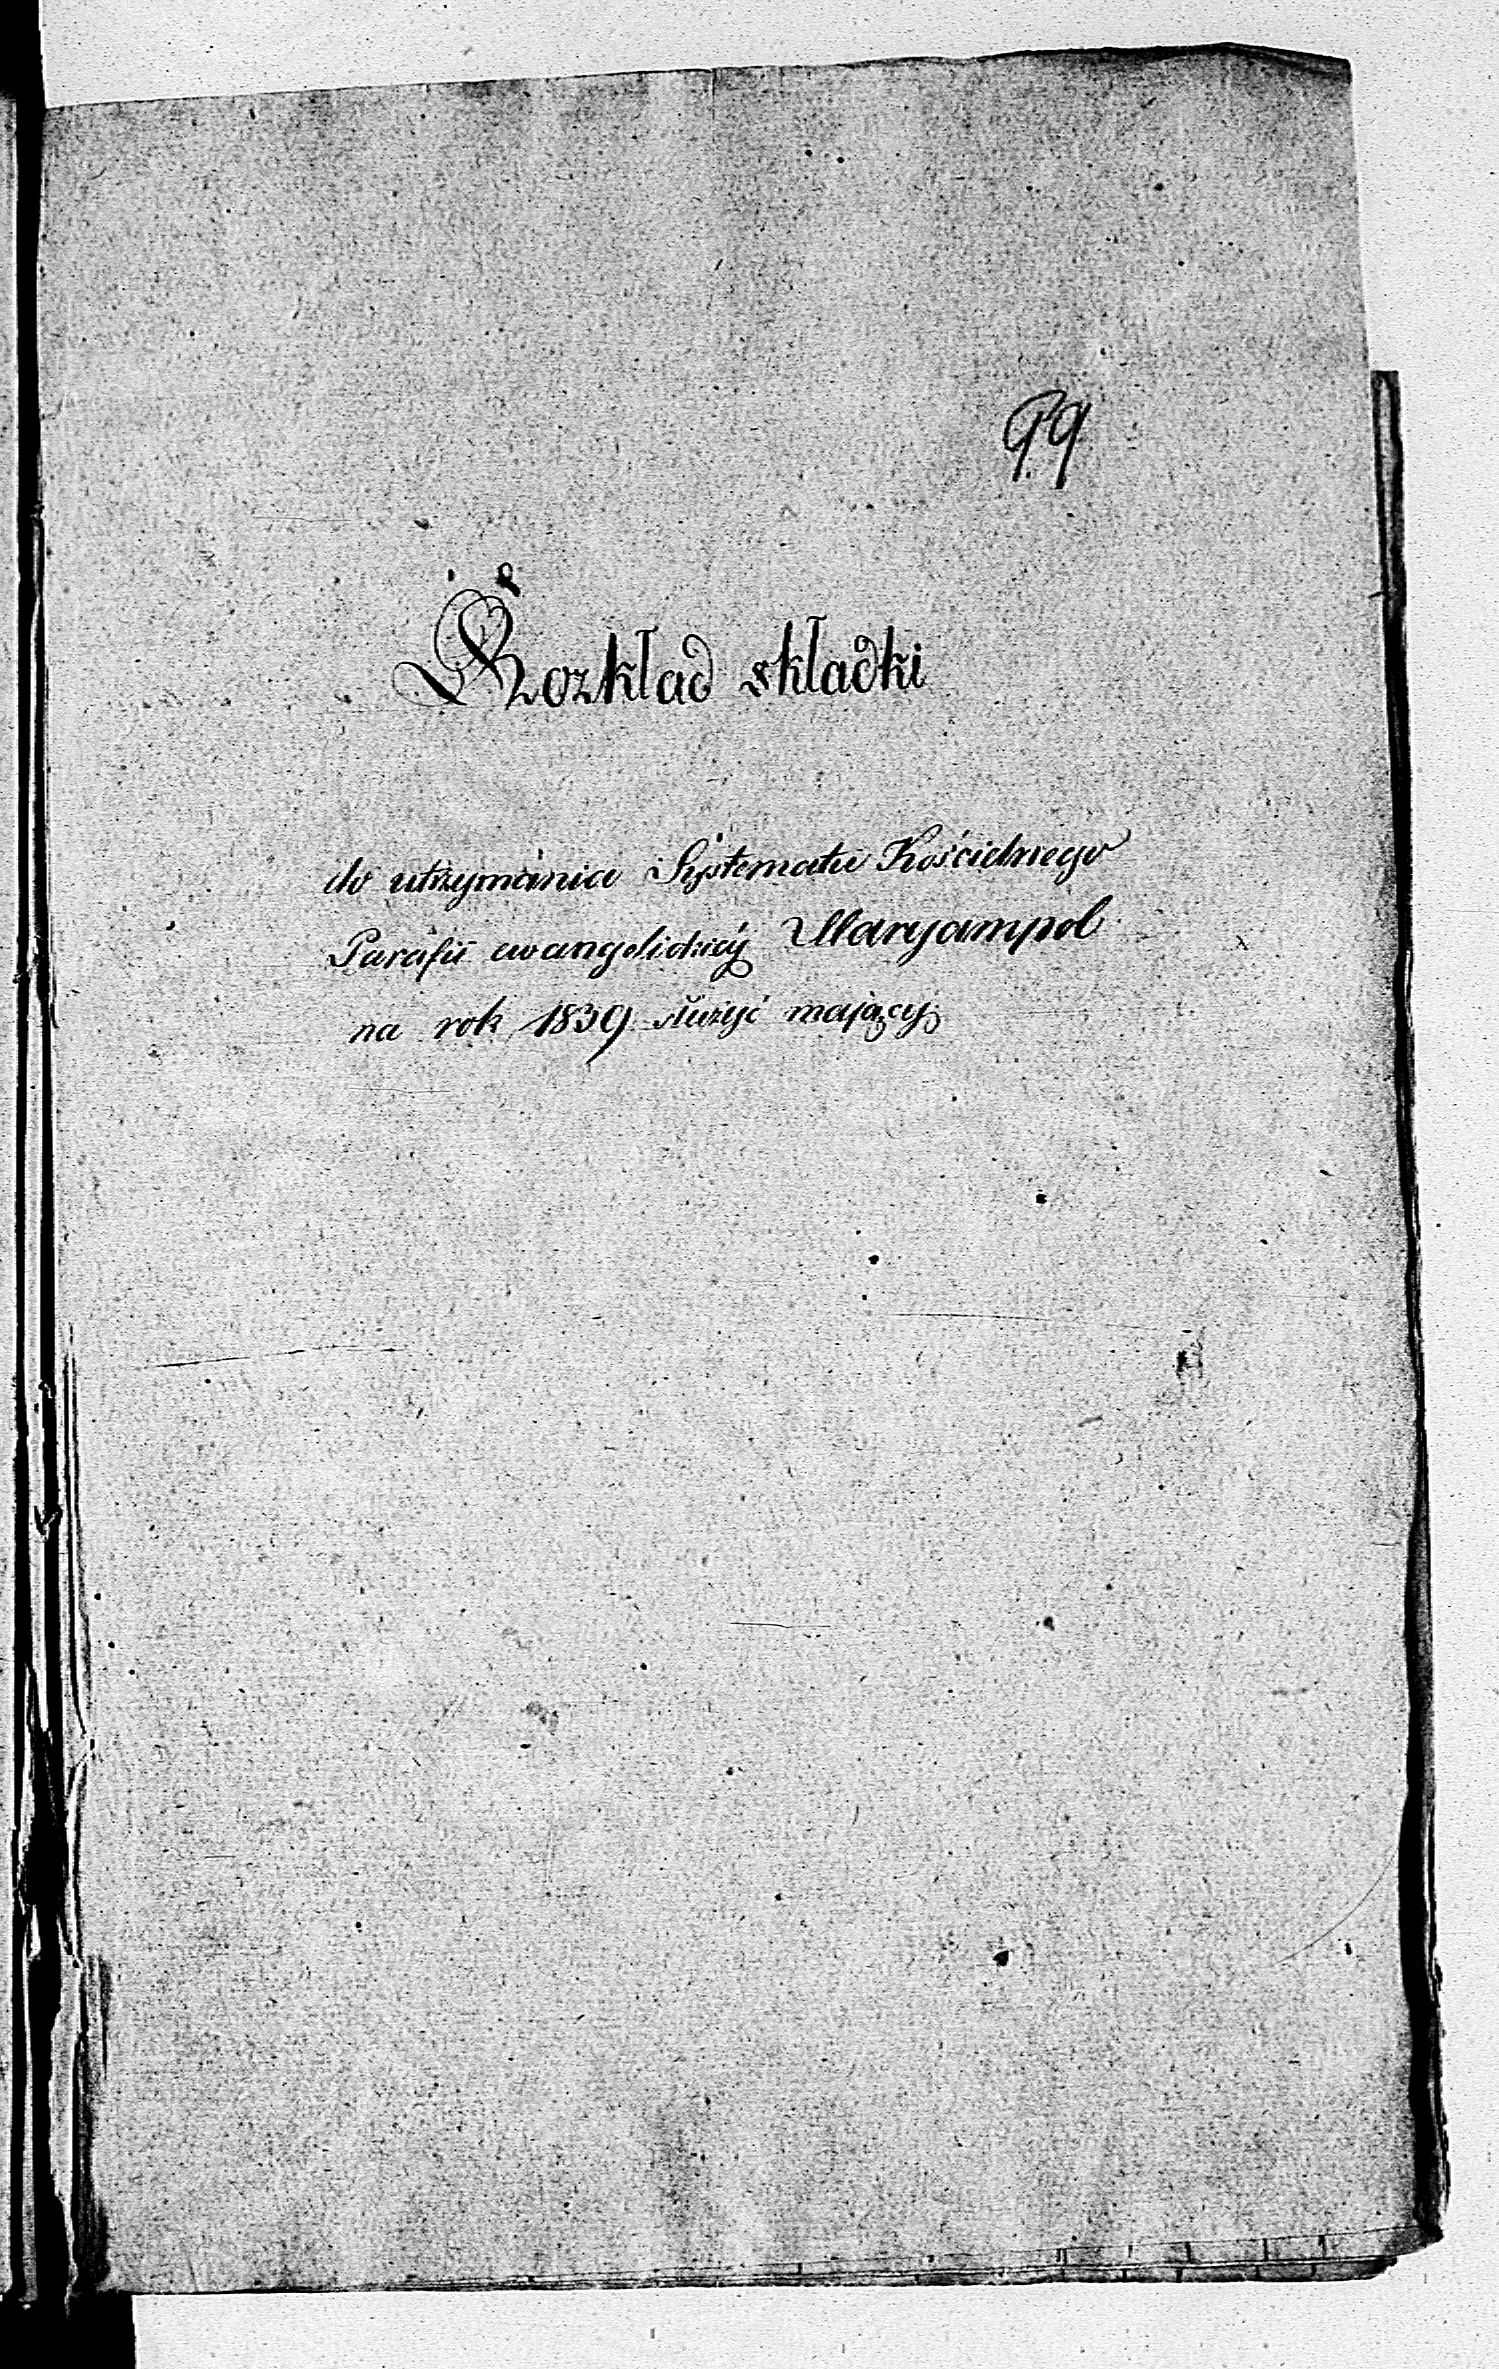 99
Rozkład składki
do utrzymania Systematu Kościelnego
Parafii ewangelickiéy Maryampol
na rok 1839 służyć mający